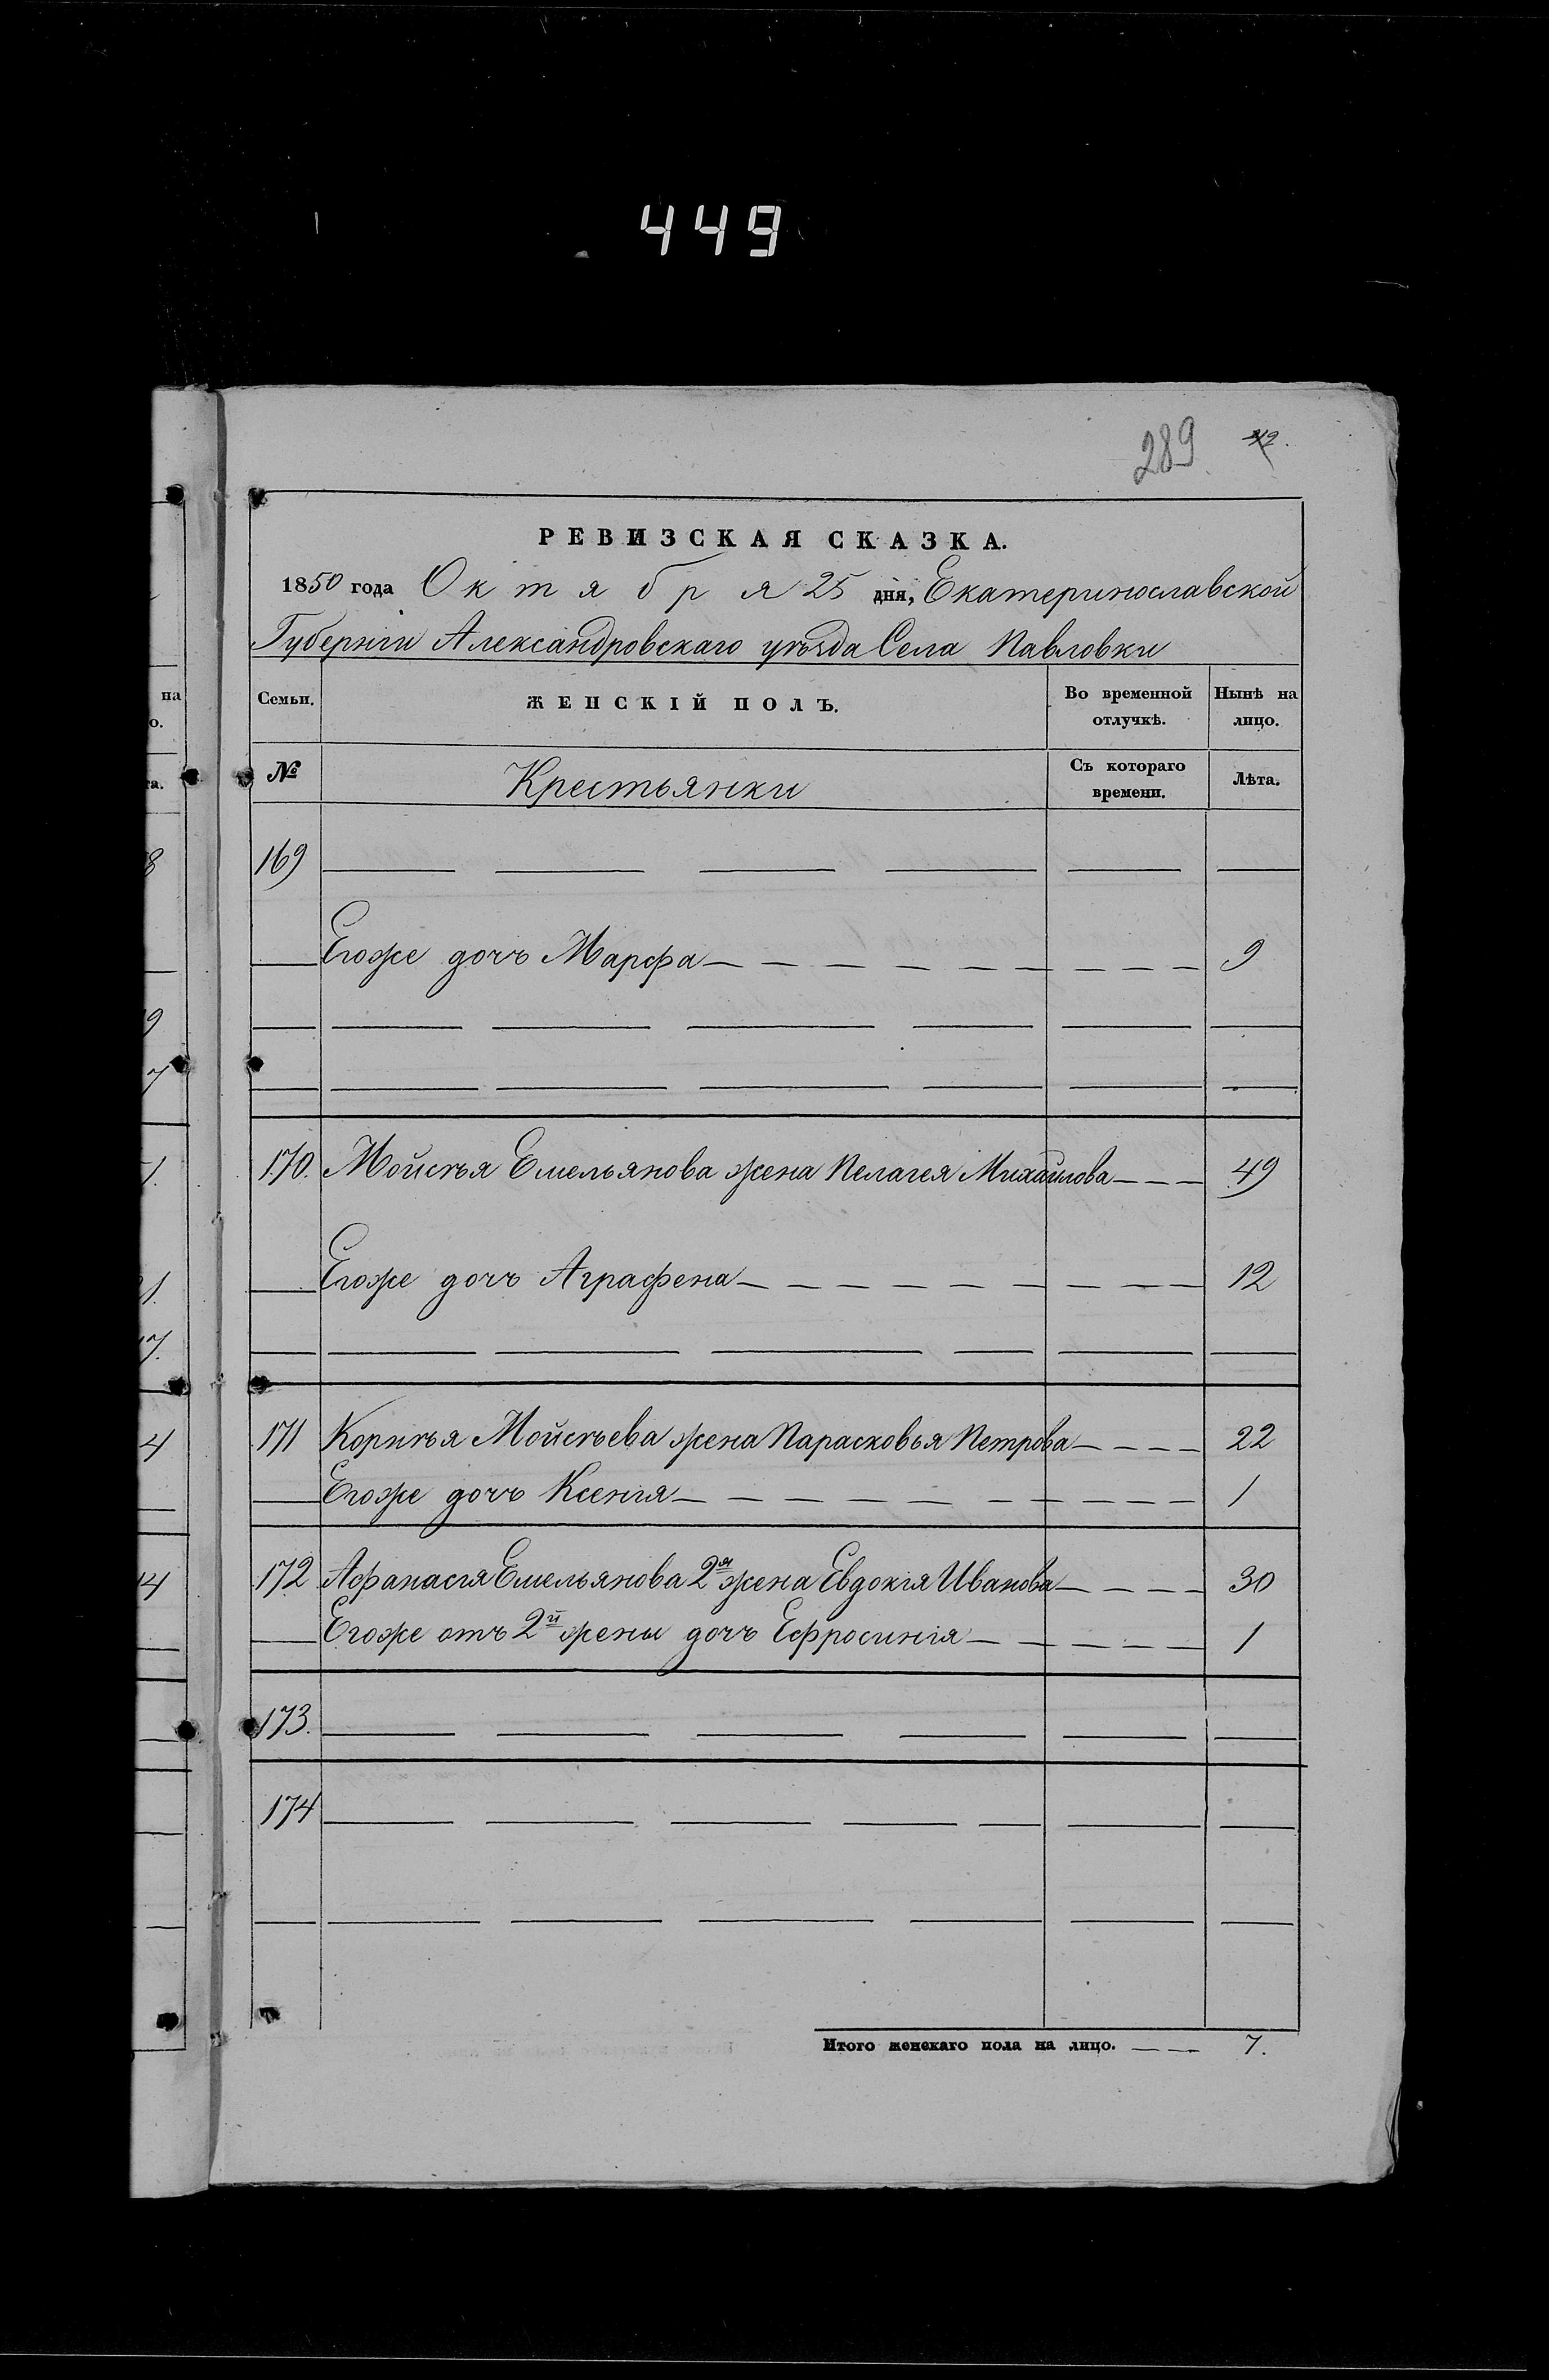 449
289
РЕВИЗСКАЯ СКАЗКА.
1850 года Октября 25 дня, Екатеринославской
Губерніи Александровскаго уѣзда Села Павловки
Семьи. ЖЕНСКІЙ ПОЛЪ. Во временной отлучкѣ. Нынѣ на лицо.
№ Крестьянки Съ котораго времени. Лѣта.
169
Егоже дочь Марфа 9
170. Мойсѣя Емельянова жена Пелагея Михайлова 49
Егоже дочь Аграфена 12
171 Корнѣя Мойсѣева жена Парасковья Петрова 22
Егоже дочь Ксенія 1
172 Афанасія Емельянова 2я жена Евдокія Иванова 30
Егоже отъ 2й жены дочь Ефросинія 1
173.
174
Итого женскаго пола на лицо. 7.